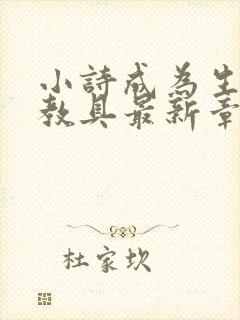 小詩成為生
教具最新章
杜家坎